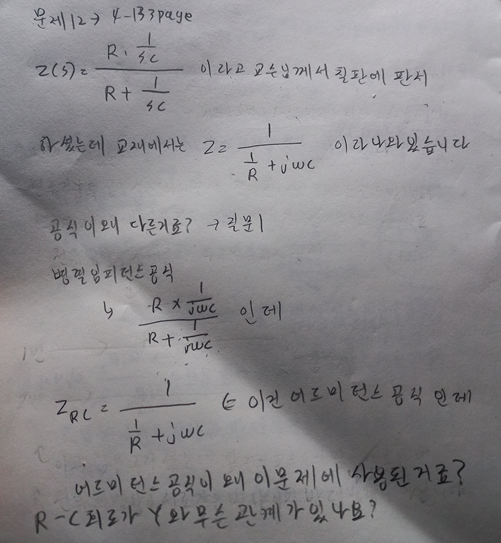 문제12 → 4-133page
Z(s) = (R · 1/sc) / (R + 1/sc) 이라고 교수님께서 칠판에 판서
하셨는데 교재에서는 Z = 1 / (1/R + jwc) 이라 나와있습니다
공식이 왜 다른거죠? → 질문1
병렬임피던스공식
↳ (R × 1/jwc) / (R + 1/jwc) 인데
Z_RC = 1 / (1/R + jwc) ← 이건 어드미턴스 공식 인데
어드미턴스공식이 왜 이문제에 사용된거죠?
R-C회로가 Y와 무슨 관계가 있나요?